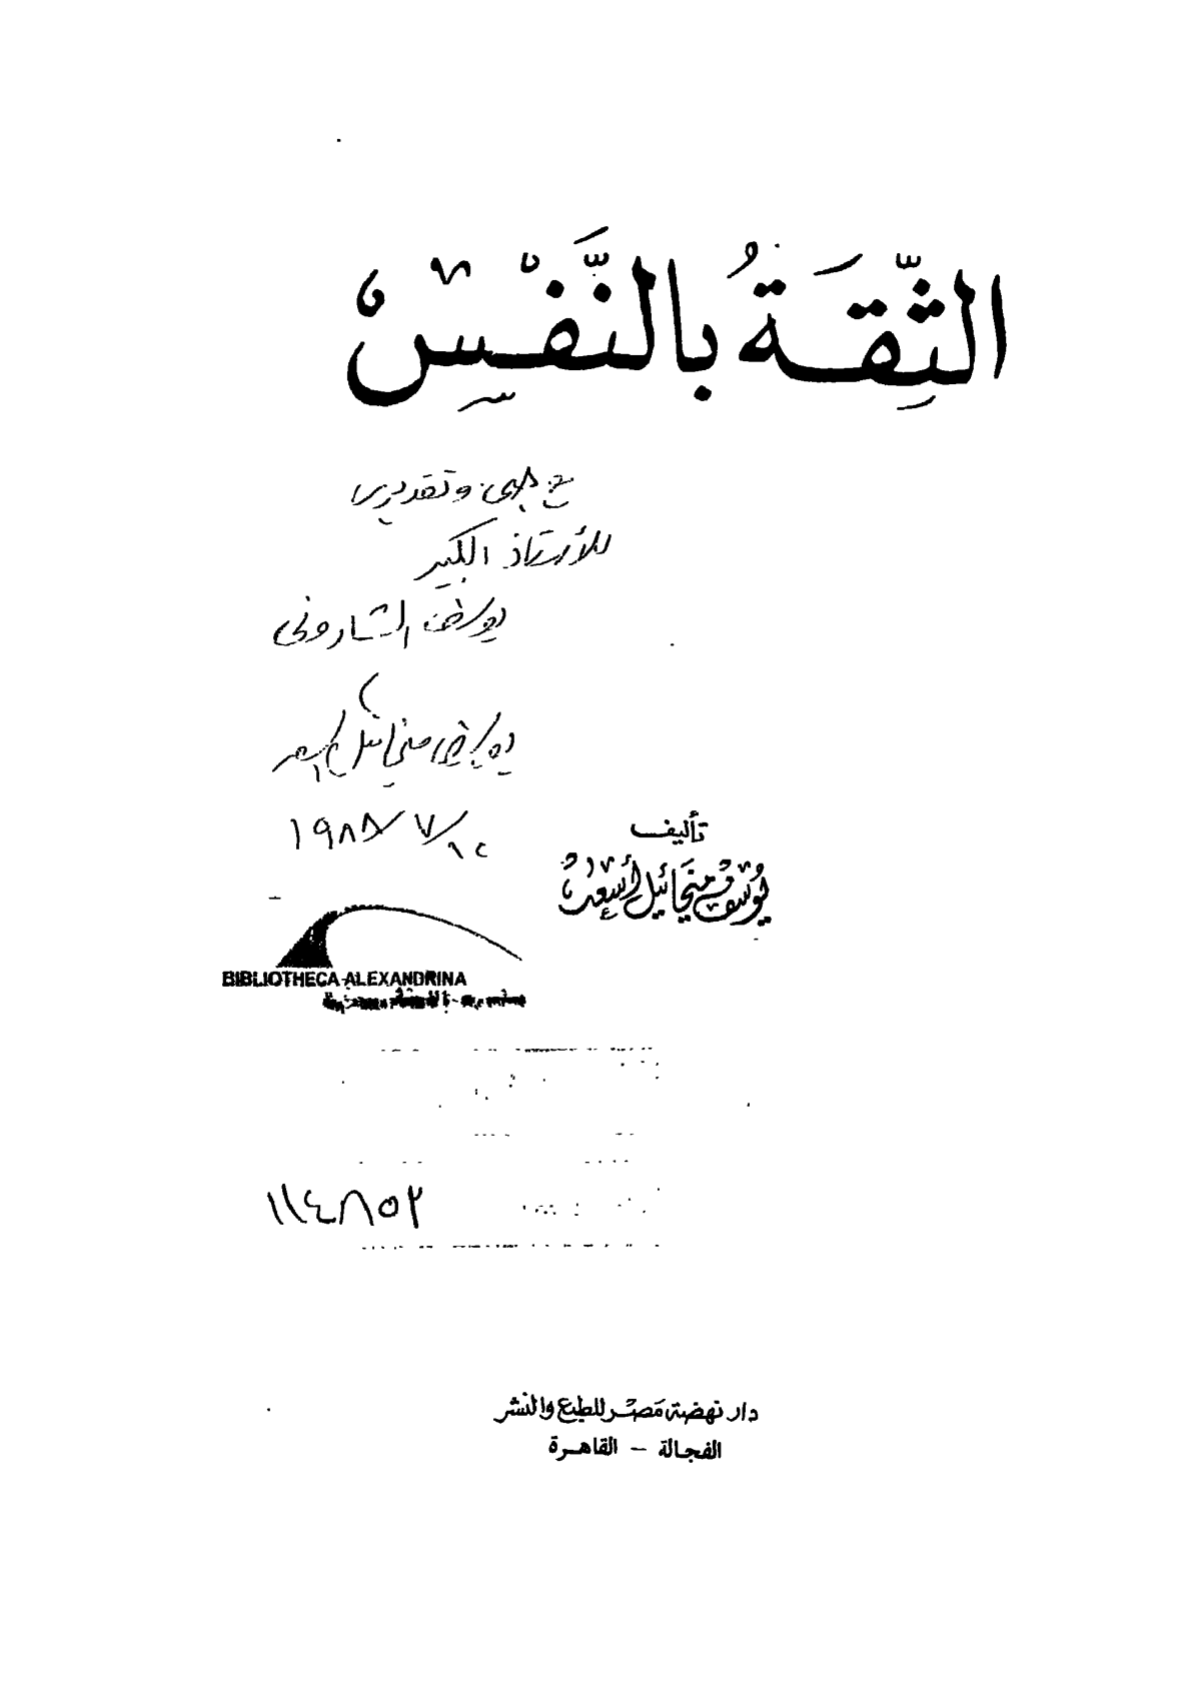 الثِّقَةُ بالنَّفْسِ
مع حبى وتقديرى
للأستاذ الكبير
يوسف الشارونى
يوسف ميخائيل أسعد
١٩٨٨/٧/١٠
تأليف
يوسف ميخائيل أسعد
BIBLIOTHECA ALEXANDRINA
مكتبة الإسكندرية
١١٤٨٥٢
دار نهضة مصر للطبع والنشر
الفجالة - القاهرة